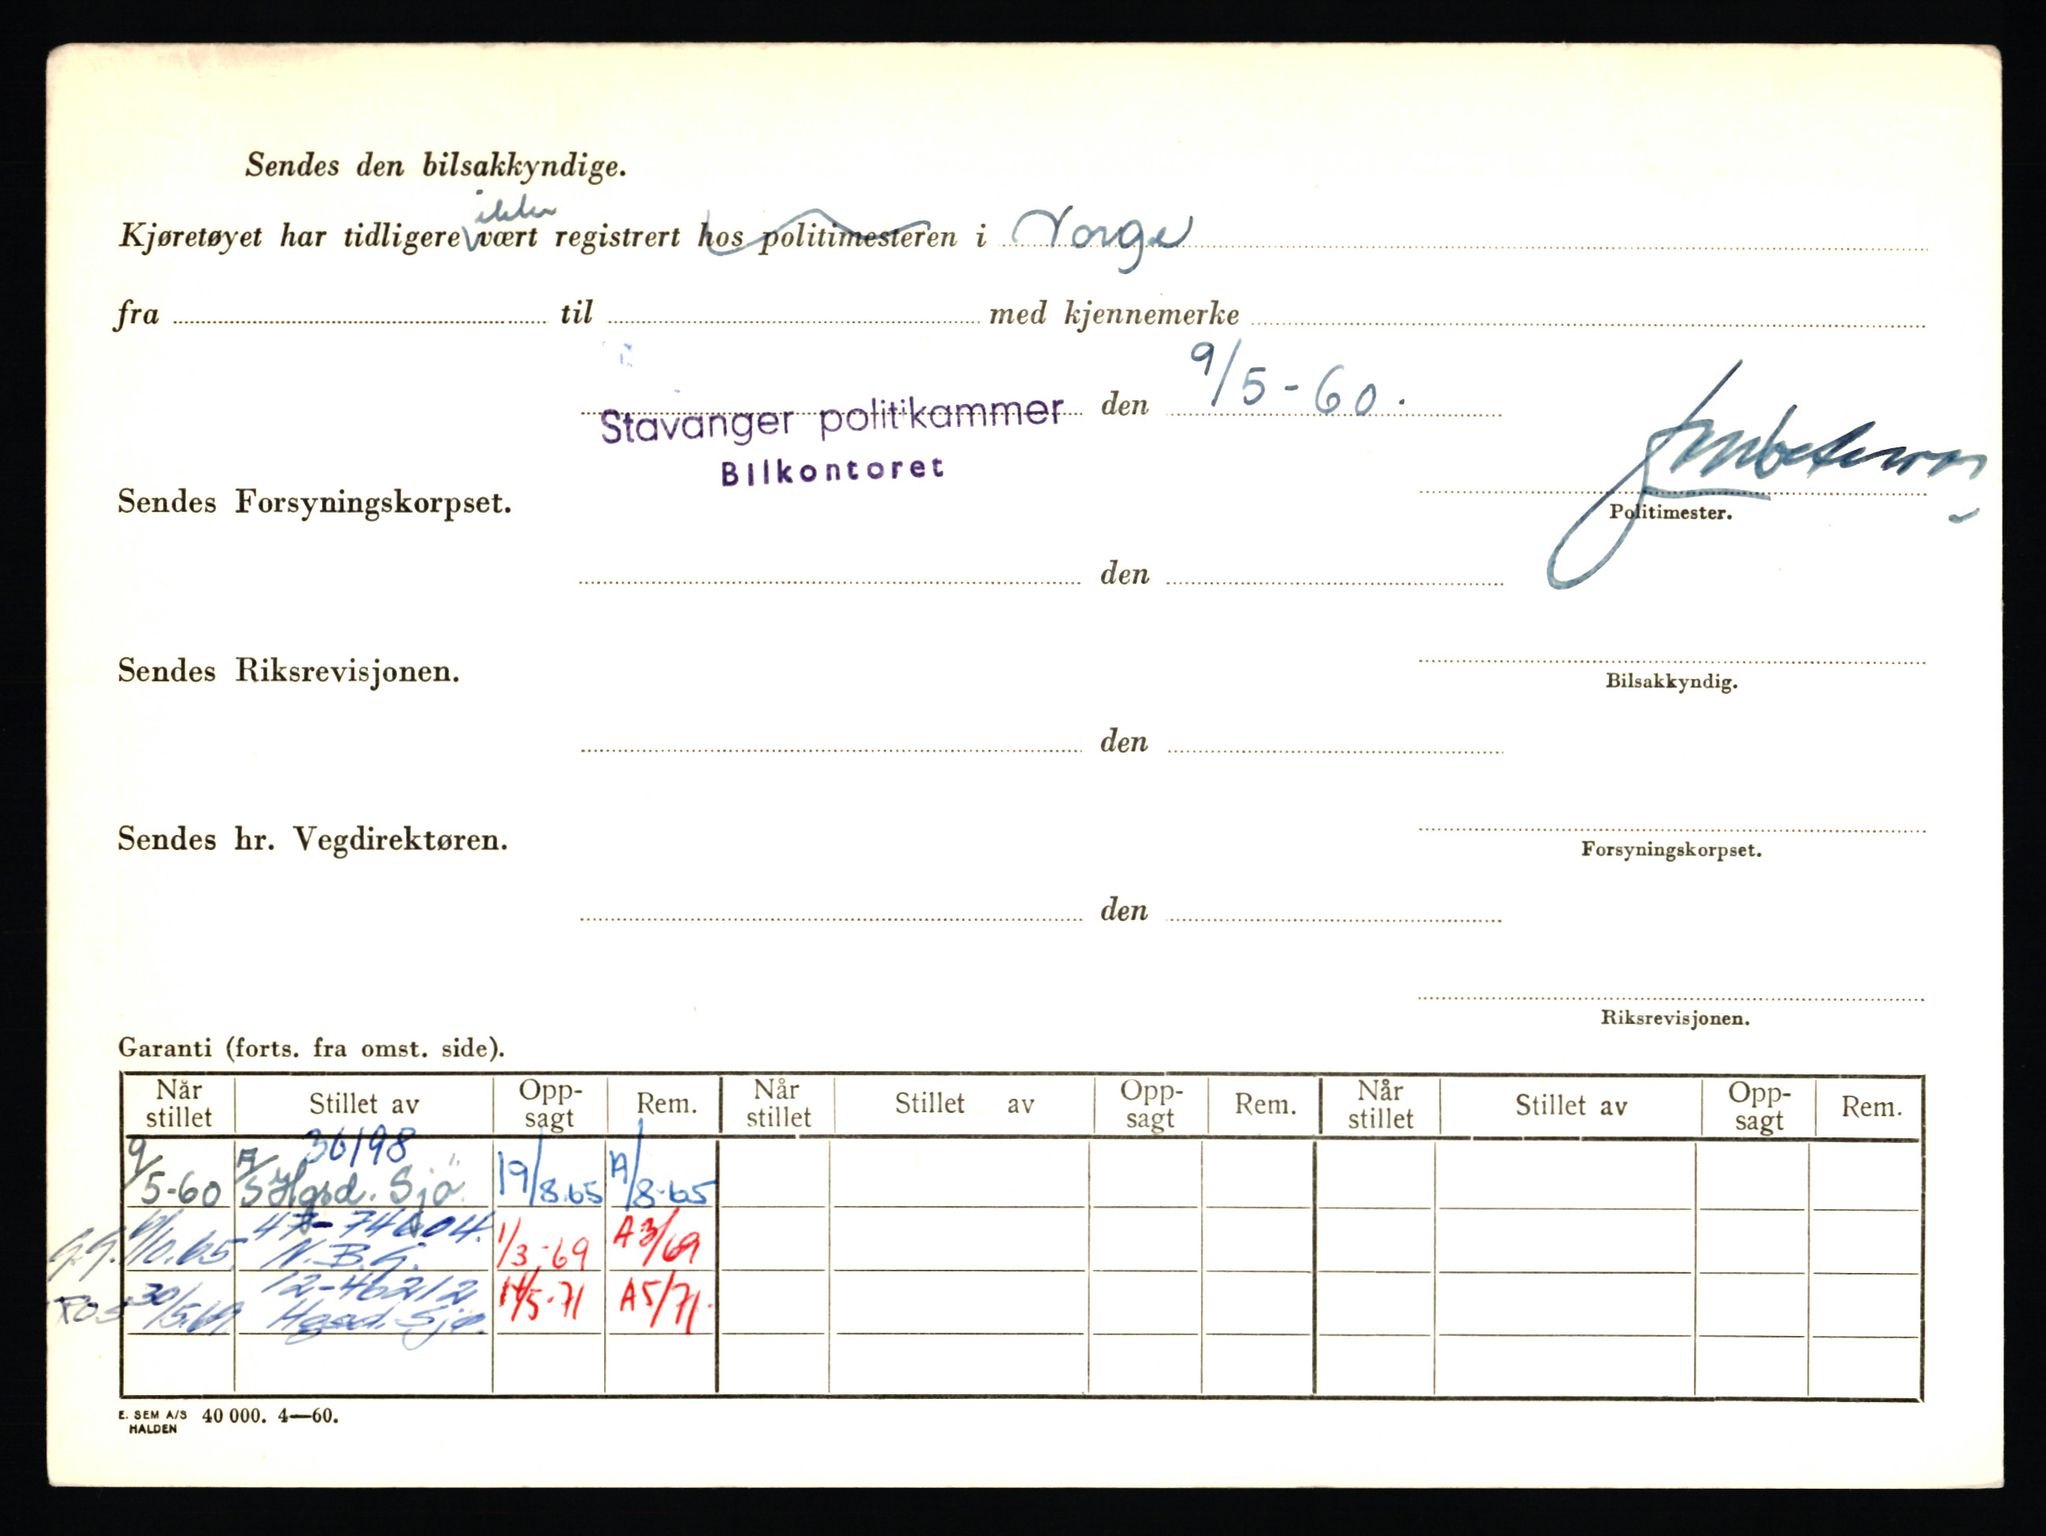 Sendes den bilsakkyndige.
ikke
Kjøretøyet har tidligere vært registrert hos politimesteren i Norge
fra til med kjennemerke
Stavanger politikammer den 9/5-60.
Bilkontoret
Sendes Forsyningskorpset.
Politimester.
den
Sendes Riksrevisjonen.
Bilsakkyndig.
den
Sendes hr. Vegdirektøren.
Forsyningskorpset.
den
Riksrevisjonen.
Garanti (forts. fra omst. side).
Når stillet Stillet av Opp-sagt Rem. Når stillet Stillet av Opp-sagt Rem. Når stillet Stillet av Opp-sagt Rem.
36198
9/5-60 A/S Hgsd. Sjö 19/8.65 A/8-65
/10.65. N.B.G. 1/3-69 A3/69
12-46212
30/5.69. Hgsd. Sjø. 14/5-71 A5/71.
E. SEM A/S HALDEN 40 000. 4—60.